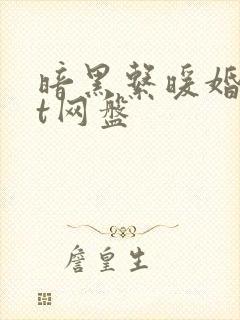 暗黑系暖婚
t网盘
詹皇生